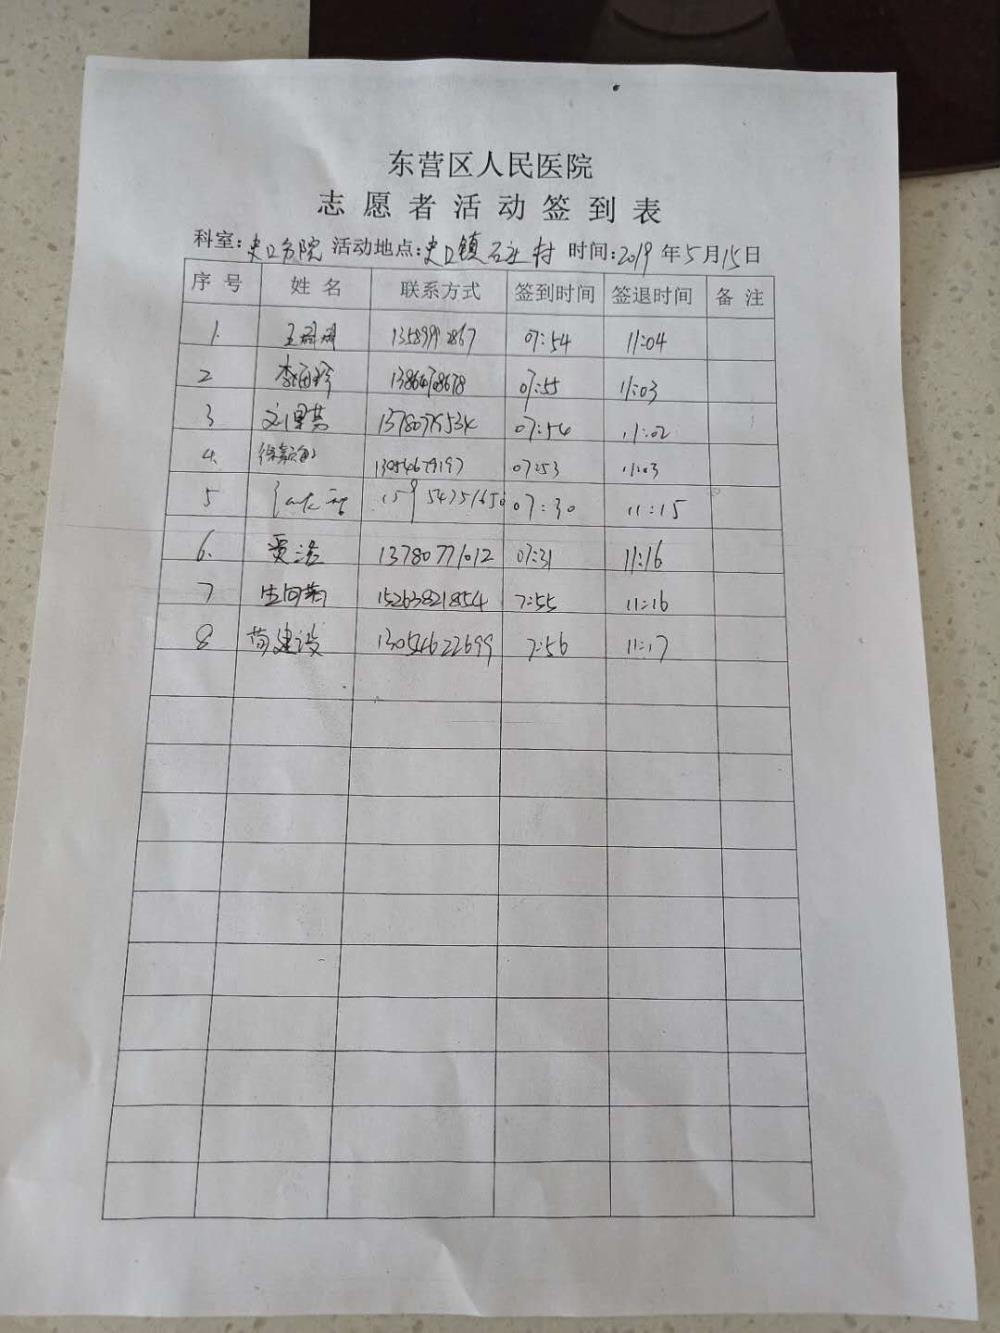 东营区人民医院
志愿者活动签到表
科室:史口分院 活动地点:史口镇 村 时间:2019年5月15日
序号 姓名 联系方式 签到时间 签退时间 备注
1. 王 07:54 11:04
2 李 07:55 11:03
3 13780775534 07:54 11:02
4. 徐 13054679197 07:53 11:03
5 15954751650 07:30 11:15
6. 贾浩 13780771012 07:31 11:16
7 15263821854 7:55 11:16
8 苟建设 13054622699 7:56 11:17